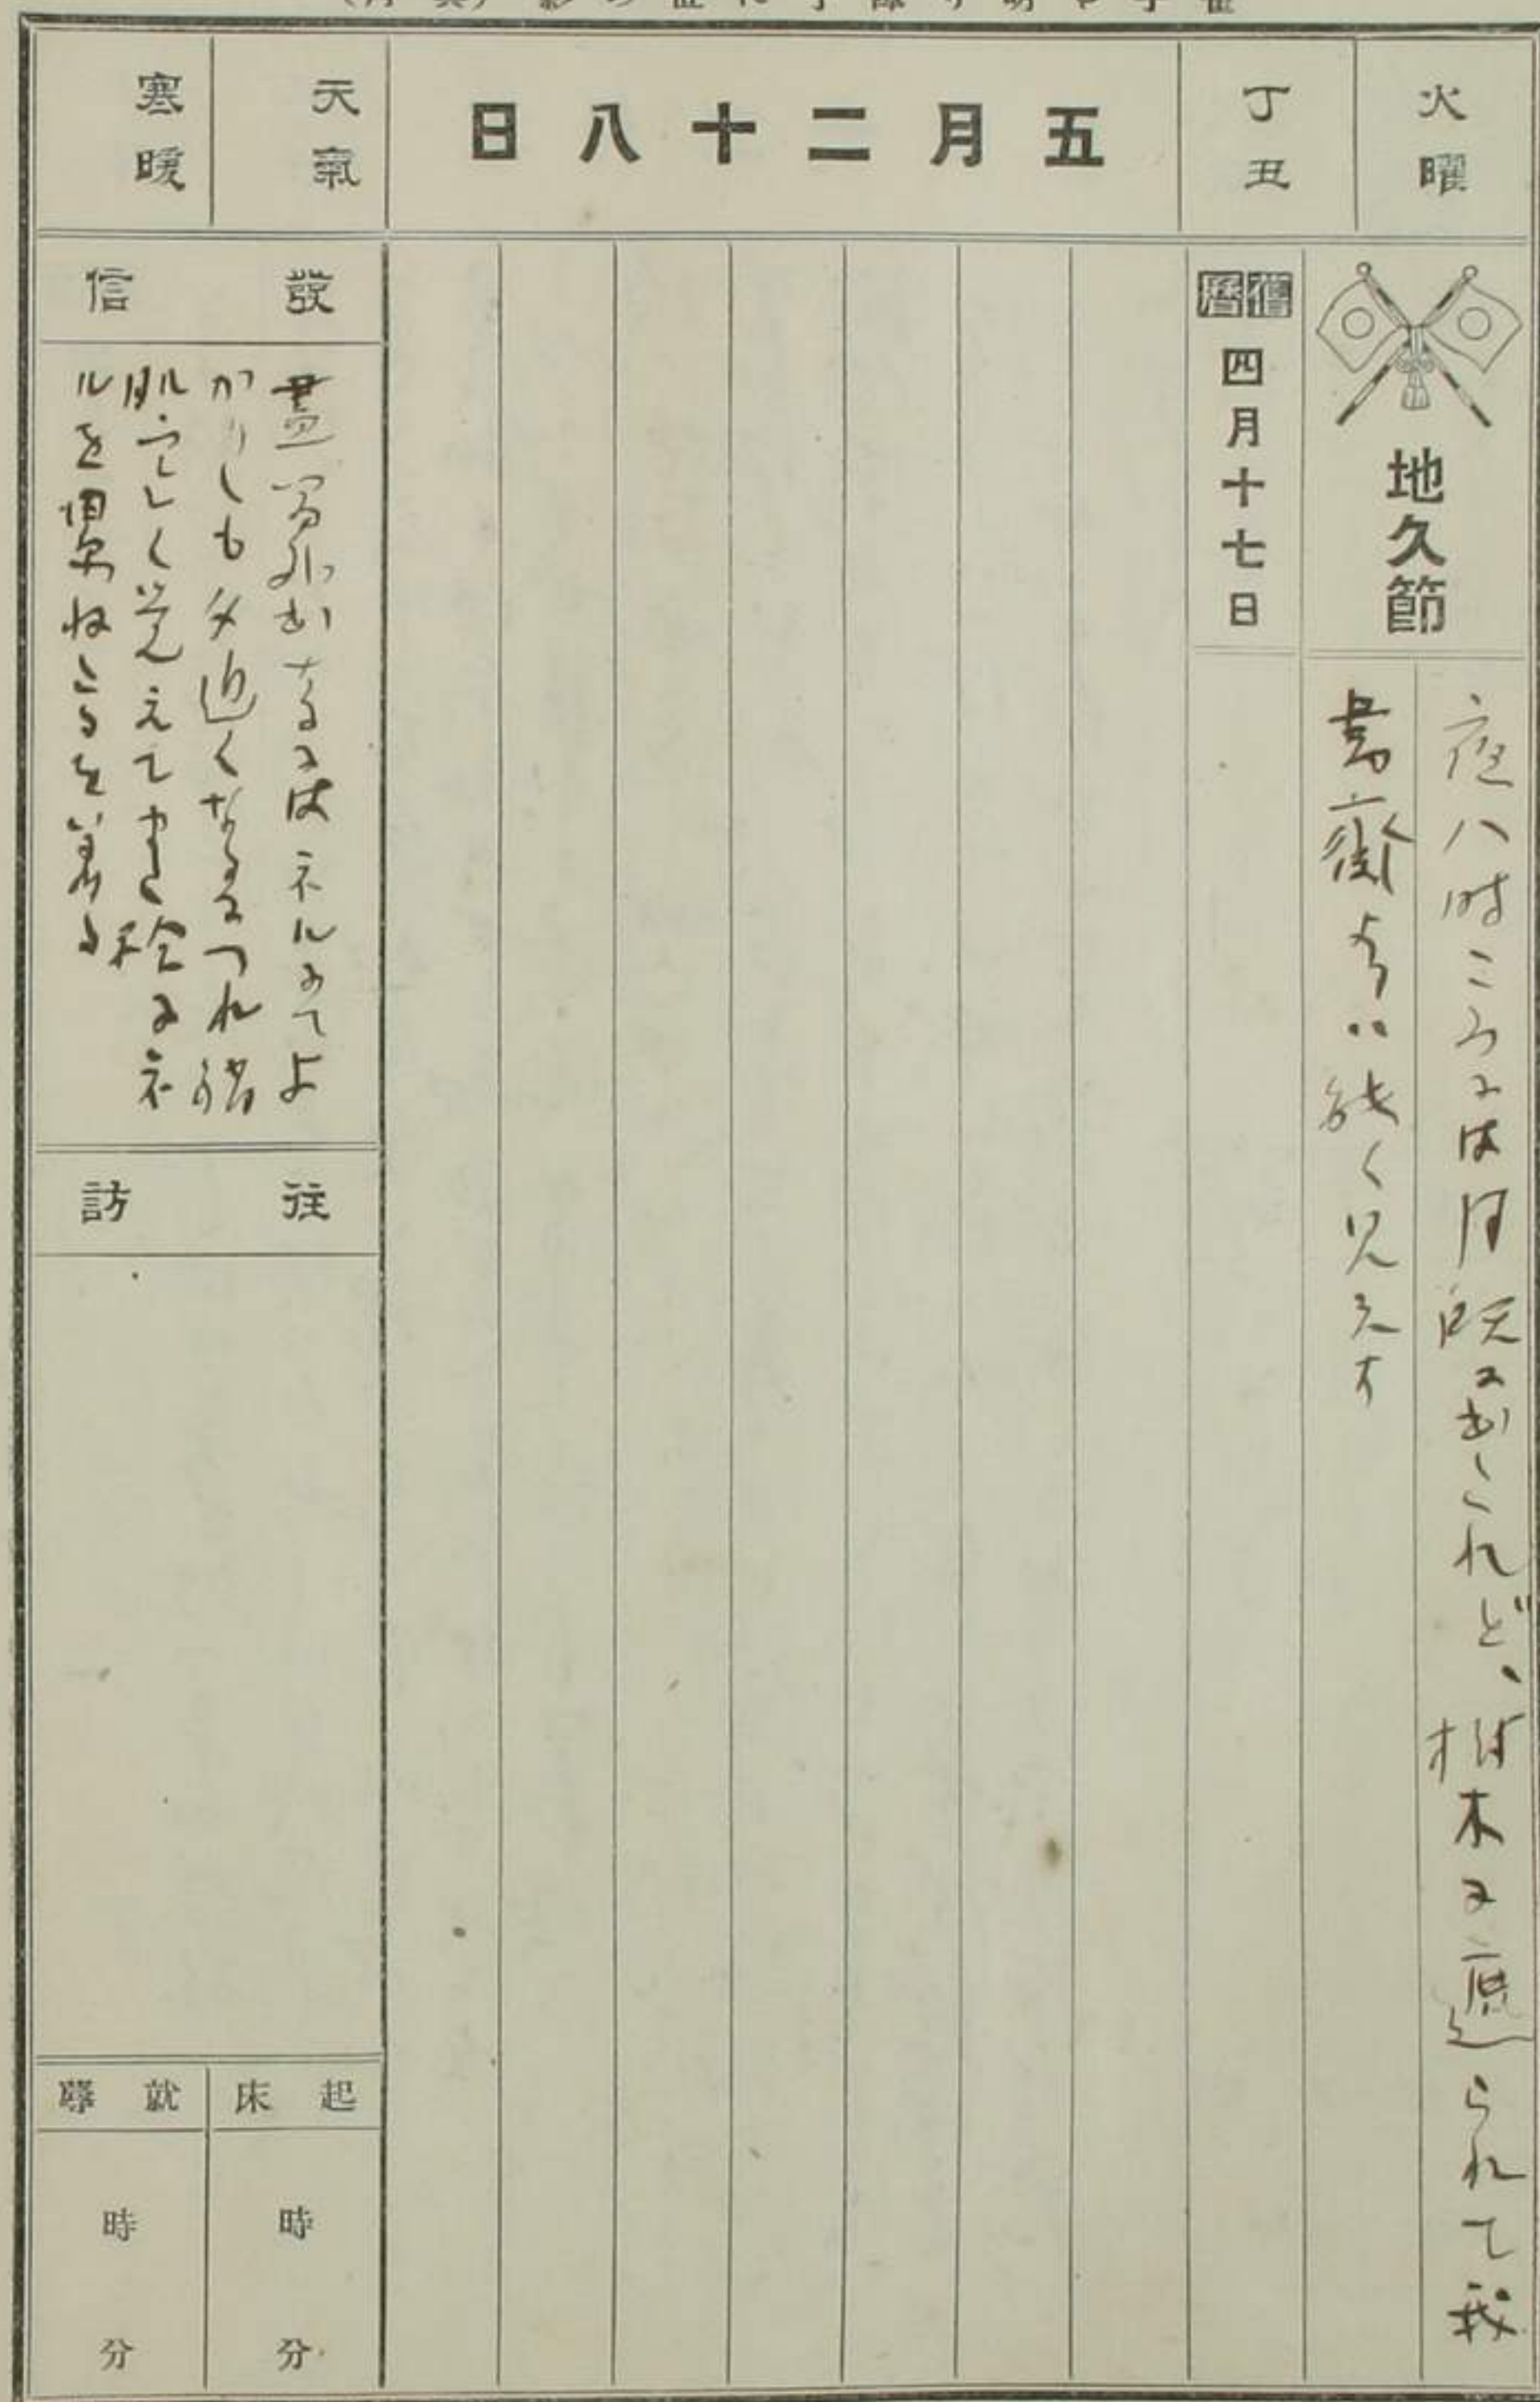 火曜
丁丑
五月二十八日
天氣
寒暖
地久節
舊暦
四月十七日
夜八時ころには月既に出たれど、樹木に遮られて我
書齋よりは能く見えず
發信
晝間外出するにはネルにてよ
かりしも夕近くなるにつれ稍
肌寒しく覚えて袷にネ
ルを重ねたるを着る
往訪
起床
時
分
就蓐
時
分